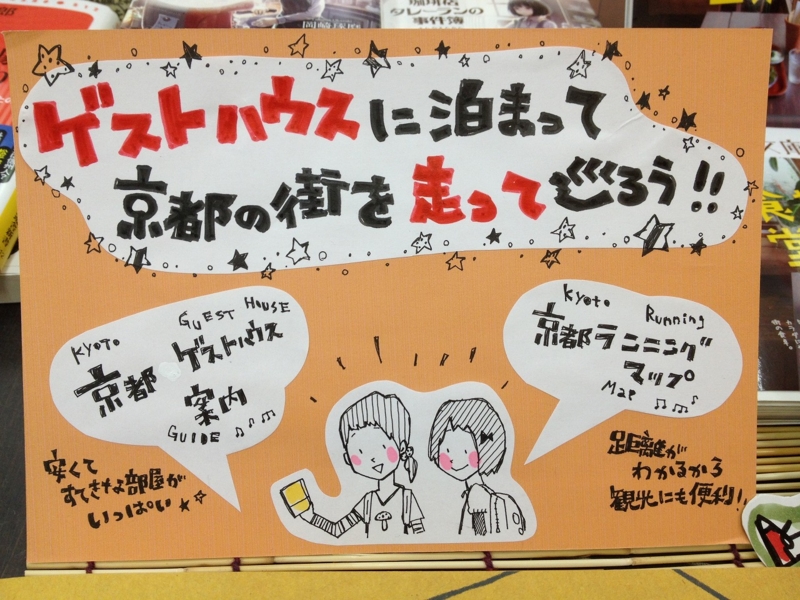 珈琲店
タレーランの
事件簿
ゲストハウスに泊まって
京都の街を走って巡ろう!!
Kyoto GUEST HOUSE
京都 ゲストハウス
案内
GUIDE
安くて
すてきな部屋が
いっぱい
Kyoto Running
京都ランニング
マップ
MaP
足距離が
わかるから
観光にも便利!
文庫